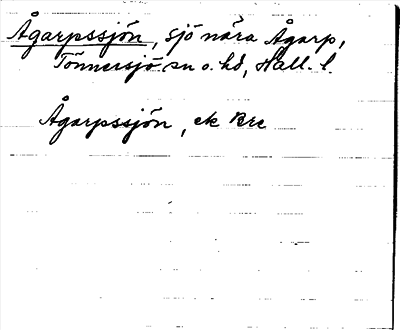 Ågarpssjön, sjö nära Ågarp,
Tönnersjö sn o. hd, Hall. l.
Ågarpssjön, ek Bre